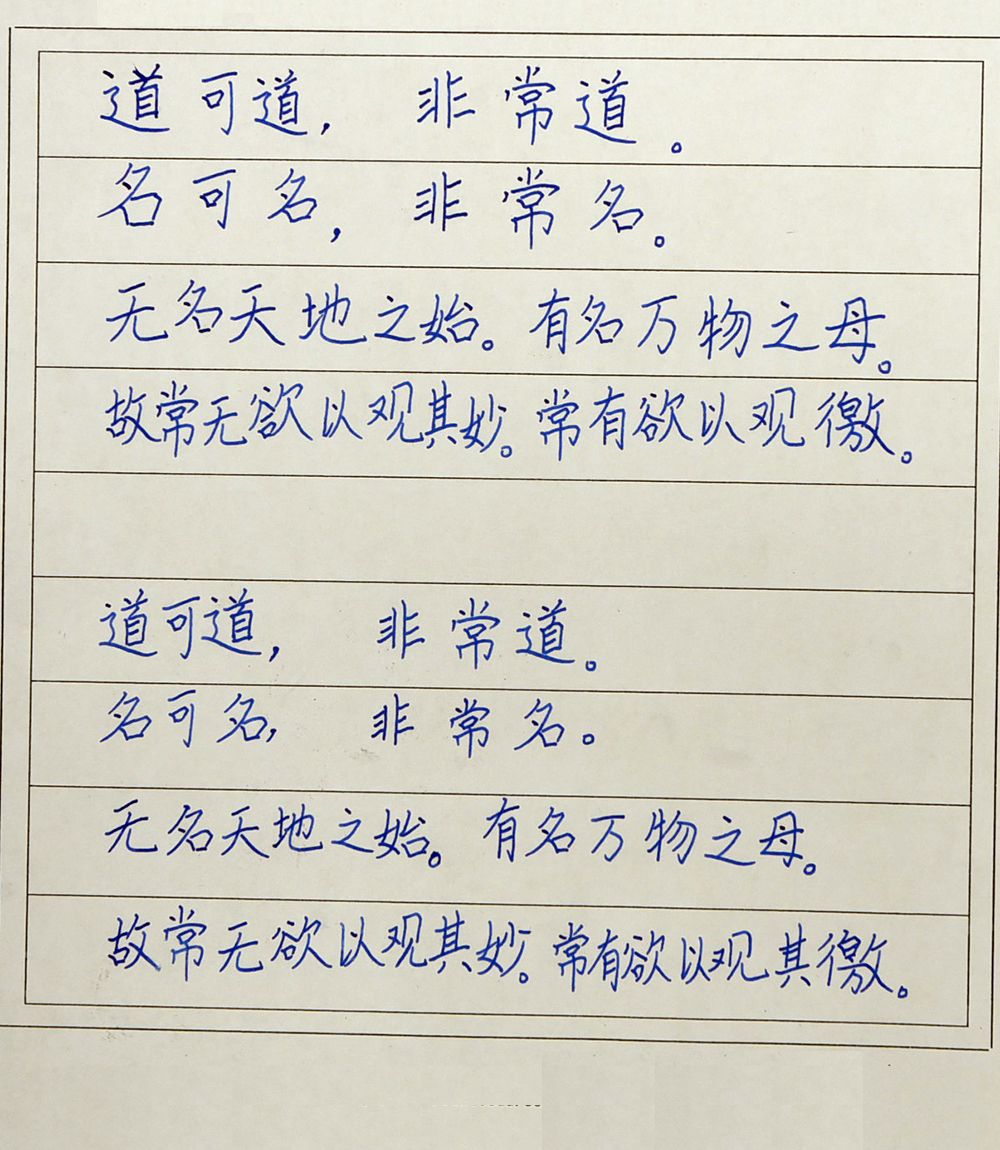 道可道，非常道。
名可名，非常名。
无名天地之始。有名万物之母。
故常无欲以观其妙。常有欲以观徼。
道可道，非常道。
名可名，非常名。
无名天地之始。有名万物之母。
故常无欲以观其妙。常有欲以观其徼。